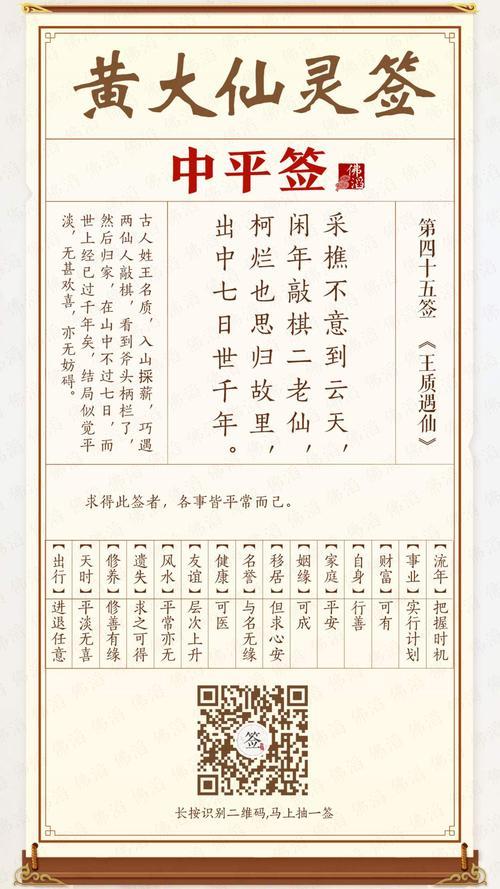 黄大仙灵签
中平签
佛滔
第四十五签 《王质遇仙》
采樵不意到云天，
闲年敲棋二老仙，
柯烂也思归故里，
出中七日世千年。
古人姓王名质，入山採薪，巧遇
两仙人敲棋，看到斧头柄栏了，
然后归家，在山中不过七日，而
世上经已过千年矣，结局似觉平
淡，无甚欢喜，亦无妨碍。
求得此签者，各事皆平常而已。
【流年】把握时机
【事业】实行计划
【财富】可有
【自身】行善
【家庭】平安
【姻缘】可成
【移居】但求心安
【名誉】与名无缘
【健康】可医
【友谊】层次上升
【风水】平常亦无
【遗失】求之可得
【修养】修善有缘
【天时】平淡无喜
【出行】进退任意
签
长按识别二维码,马上抽一签